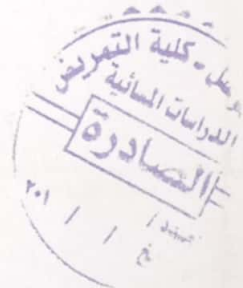 كلية التمريض
الدراسات المسائية
الصادرة
/ / ٢٠١